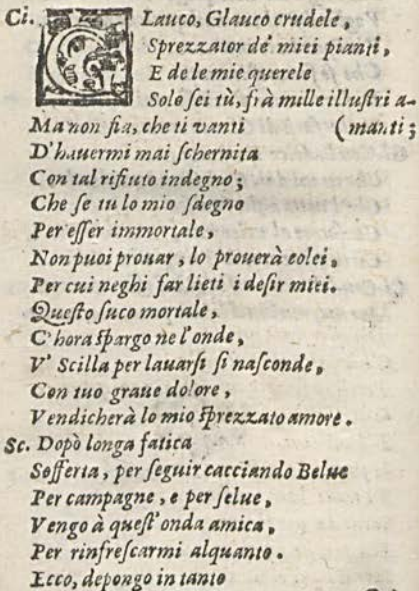 Ci. GLauco, Glauco crudele,
Sprezzator de' miei pianti,
E de le mie querele
Solo sei tù, frà mille illustri a-
Ma non fia, che ti vanti (manti;
D'hauermi mai schernita
Con tal rifiuto indegno;
Che se tu lo mio sdegno
Per esser immortale,
Non puoi prouar, lo prouerà colei,
Per cui neghi far lieti i desir miei.
Questo suco mortale,
C'hora spargo ne l'onde,
V' Scilla per lauarsi si nasconde,
Con tuo graue dolore,
Vendicherà lo mio sprezzato amore.
Sc. Dopò longa fatica
Sofferta, per seguir cacciando Belue
Per campagne, e per selue,
Vengo à quest'onda amica,
Per rinfrescarmi alquanto.
Ecco, depongo in tanto